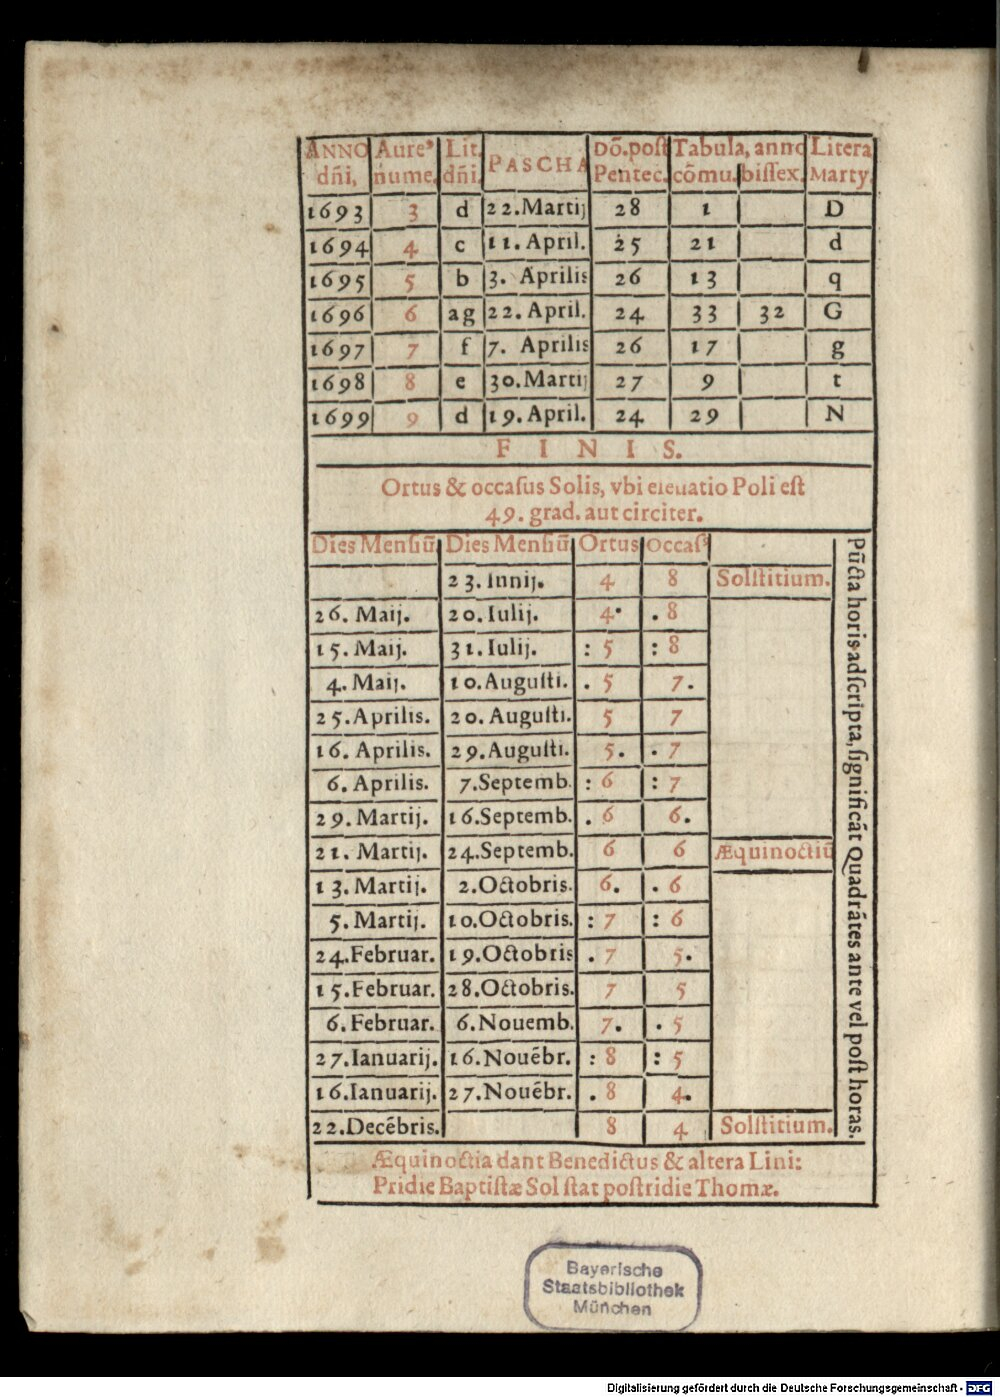 ANNO dñi, | Aure⁹ nume. | Lit. dñi. | PASCHA | Dō. post Pentec. | Tabula, anno cōmu. | bissex. | Litera Marty.
1693 | 3 | d | 22. Martij | 28 | 1 | | D
1694 | 4 | c | 11. April. | 25 | 21 | | d
1695 | 5 | b | 3. Aprilis | 26 | 13 | | q
1696 | 6 | ag | 22. April. | 24 | 33 | 32 | G
1697 | 7 | f | 7. Aprilis | 26 | 17 | | g
1698 | 8 | e | 30. Martij | 27 | 9 | | t
1699 | 9 | d | 19. April. | 24 | 29 | | N
FINIS.
Ortus & occaſus Solis, vbi eleuatio Poli eſt
49. grad. aut circiter.
Dies Menſiū | Dies Menſiū | Ortus | Occaſ⁹
| 23. Iunij. | 4 | 8 | Solſtitium.
26. Maij. | 20. Iulij. | 4· | . 8
15. Maij. | 31. Iulij. | : 5 | : 8
4. Maij. | 10. Auguſti. | . 5 | 7.
25. Aprilis. | 20. Auguſti. | 5 | 7
16. Aprilis. | 29. Auguſti. | 5. | . 7
6. Aprilis. | 7. Septemb. | : 6 | : 7
29. Martij. | 16. Septemb. | . 6 | 6.
21. Martij. | 24. Septemb. | 6 | 6 | Æquinoctiū
13. Martij. | 2. Octobris. | 6. | . 6
5. Martij. | 10. Octobris. | : 7 | : 6
24. Februar. | 19. Octobris | . 7 | 5.
15. Februar. | 28. Octobris. | 7 | 5
6. Februar. | 6. Nouemb. | 7. | . 5
27. Ianuarij. | 16. Nouēbr. | : 8 | : 5
16. Ianuarij. | 27. Nouēbr. | . 8 | 4.
22. Decēbris. | | 8 | 4 | Solſtitium.
Pūcta horis adſcripta, ſignificāt Quadrātes ante vel poſt horas.
Æquinoctia dant Benedictus & altera Lini:
Pridie Baptiſtæ Sol ſtat poſtridie Thomæ.
Bayerische
Staatsbibliothek
München
Digitalisierung gefördert durch die Deutsche Forschungsgemeinschaft - DFG